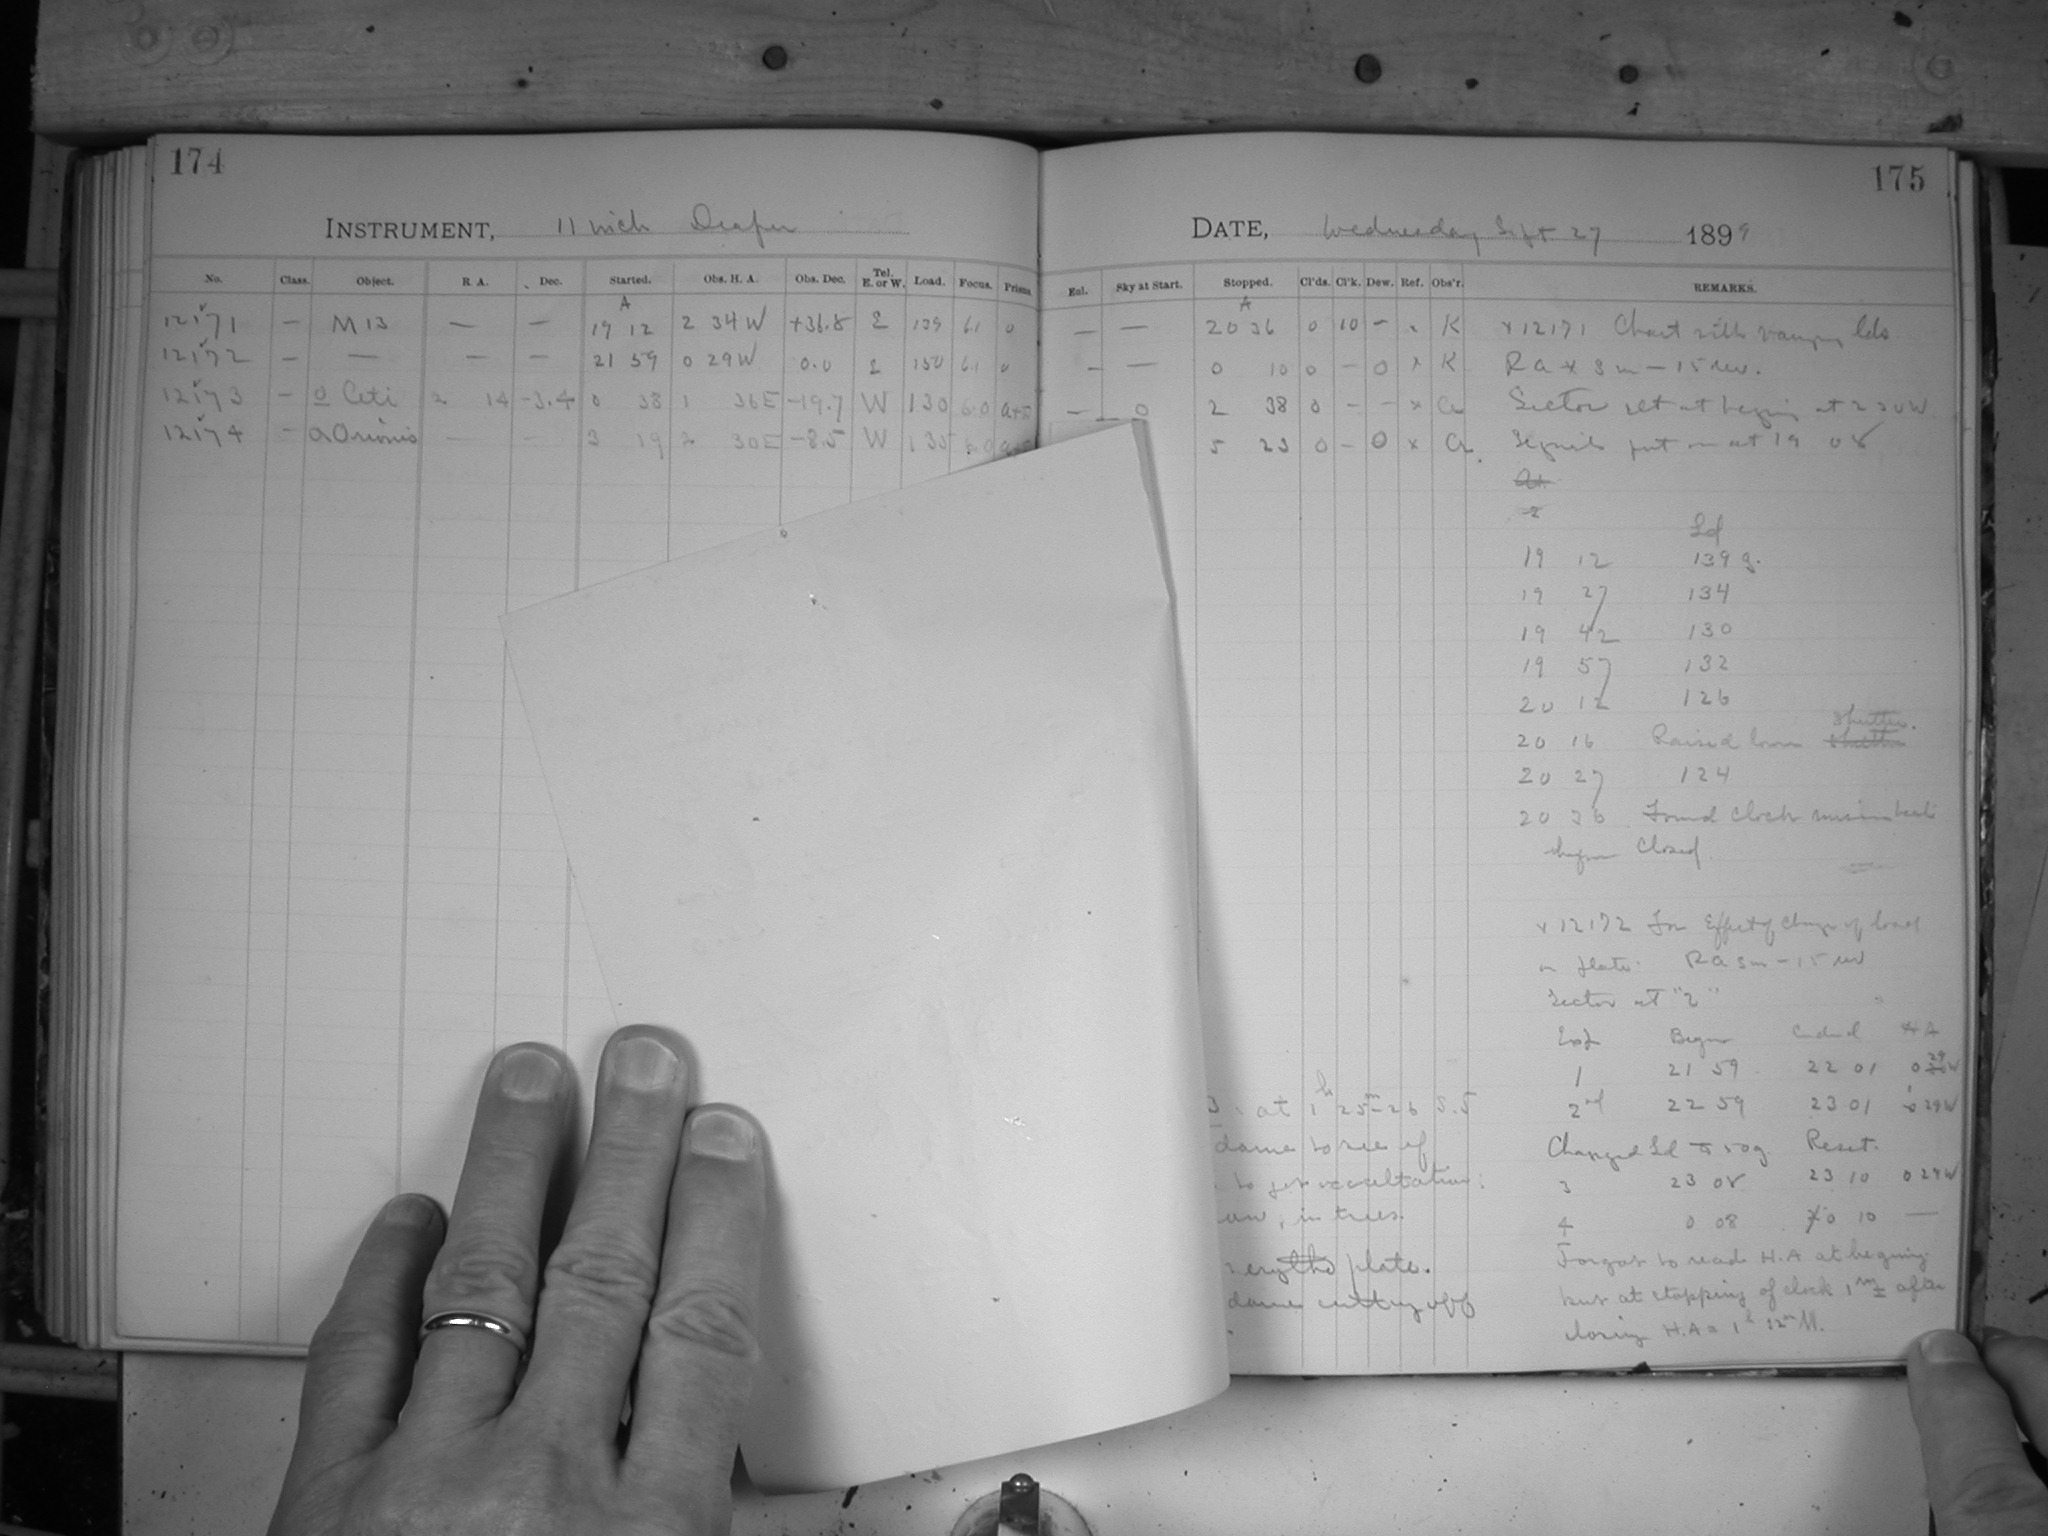 174
INSTRUMENT, 11 inch Draper
No. Class. Object. R. A. Dec. Started. Obs. H. A. Obs. Dec. Tel. E. or W. Load. Focus. Prisms.
A
12171 — M 13 — — 19 12 2 34 W +36.8 E 139 6.1 0
12172 — — — — 21 59 0 29 W 0.0 E 150 6.1 0
12173 — o Ceti 2 14 -3.4 0 38 1 36 E -19.7 W 130 6.0
12174 — α Orionis — — 3 19 2 30 E -8.5 W 135 6.0
175
DATE, Wednesday Sept 27 1899
Sky at Start. Stopped. Cl'ds. Cl'k. Dew. Ref. Obs'r. REMARKS.
A
— — 20 36 0 10 – x K x 12171 Chart with varying lds
— — 0 10 0 – 0 x K R a x 3 m – 15 rev.
— 0 2 38 0 – – x Sector set at at 2 20 W
5 23 0 – 0 x put on at 19 08
Ld
19 12 139 g.
19 27 134
19 42 130
19 57 132
20 12 126
20 16 Raised lower shutter.
20 27 124
20 36 Found clock
Closed.
x 12172 For Effect of change of load
on plate. R a 3 m – 15 rev
Sector at "2"
Exp Began Ended H A
1 21 59 22 01 0 29 W
2nd 22 59 23 01 29 W
Changed Ld to 50 g. Reset.
3 23 08 23 10 0 29 W
4 0 08 0 10 —
Forgot to read H.A at begining
but at stopping of clock 1m ± after
closing H.A = 1h 12m W.
3. at 1h 25m-26 S.5
dome to see if
to get occultation:
in trees.
plate.
dome cutting off